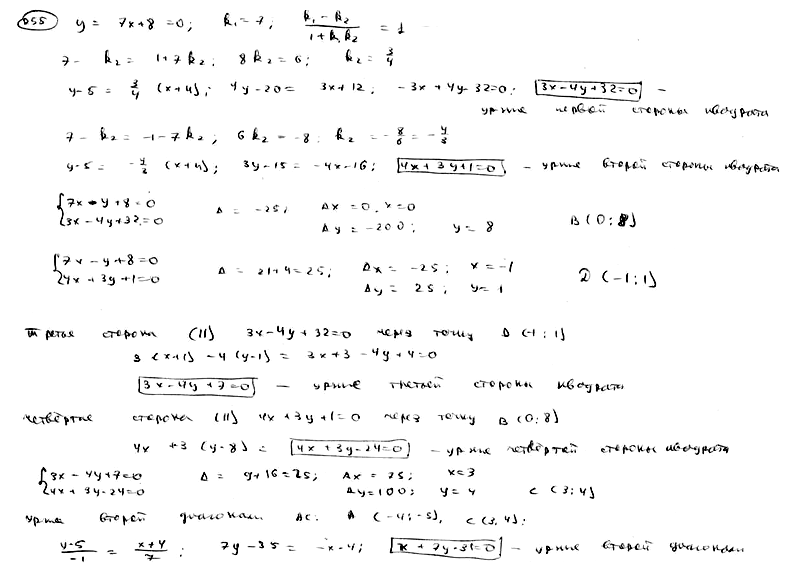 055) y = 7x+8=0; k₁=7; (k₁-k₂)/(1+k₁k₂) = 1
7- k₂ = 1+7k₂; 8k₂=6; k₂=3/4
y-5 = 3/4 (x+4); 4y-20= 3x+12; -3x+4y-32=0; 3x-4y+32=0 -
ур-ние первой стороны квадрата
7-k₂ = -1-7k₂; 6k₂=-8; k₂ = -8/6 = -4/3
y-5= -4/3 (x+4); 3y-15=-4x-16; 4x+3y+1=0 - ур-ние второй стороны квадрата
{7x-y+8=0
{3x-4y+32=0
Δ = -25; Δx=0, x=0
Δy=-200; y=8 B(0;8)
{7x-y+8=0
{4x+3y+1=0
Δ = 21+4=25; Δx= -25; x=-1
Δy= 25; y=1 D(-1;1)
Третья сторона (||) 3x-4y+32=0 через точку D(-1;1)
3(x+1)-4(y-1) = 3x+3-4y+4=0
3x-4y+7=0 - ур-ние третьей стороны квадрата
четвёртая сторона (||) 4x+3y+1=0 через точку B(0;8)
4x+3(y-8)= 4x+3y-24=0 - ур-ние четвёртой стороны квадрата
{3x-4y+7=0
{4x+3y-24=0
Δ = 9+16=25; Δx=75; x=3
Δy=100; y=4 C(3;4)
ур-ние второй диагонали AC: A(-4;-5), C(3,4):
(y-5)/-1 = (x+4)/7; 7y-35=-x-4; x+7y-31=0 - ур-ние второй диагонали